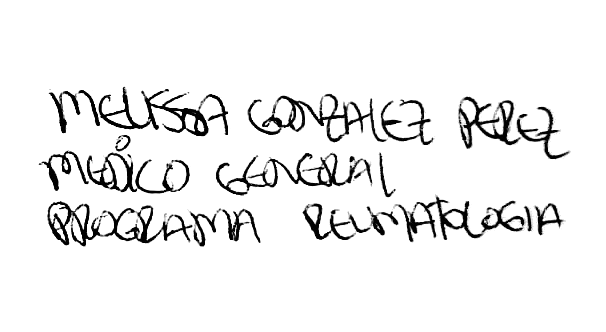 MELISSA GONZALEZ PEREZ
MEDICO GENERAL
PROGRAMA REUMATOLOGIA